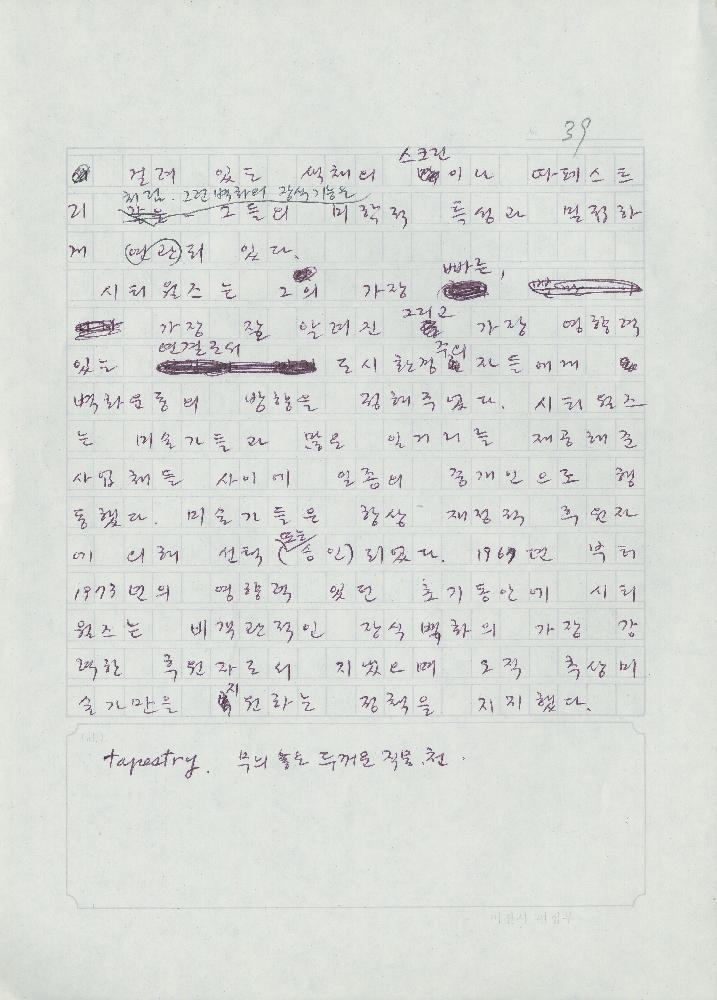 39
걸려 있는 색채의 스크린이나 따페스트
리처럼. 그런 벽화의 장식기능은 그들의 미학적 특성과 밀접하
게 연관되 있다.
시티 워즈는 그의 가장 빠른,
가장 잘 알려진 그리고 가장 영향력
있는 연결로서 도시 환경주의자들에게
벽화운동의 방향을 정해주었다. 시티 워즈
는 미술가들과 많은 일거리를 제공해준
사업체들 사이에 일종의 중개인으로 행
동했다. 미술가들은 항상 재정적 후원자
에 의해 선택(또는 승인)되었다. 1969년 부터
1973년의 영향력 있던 초기동안에 시티
워즈는 비객관적인 장식벽화의 가장 강
력한 후원자로서 지냈으며 오직 추상미
술가만을 지원하는 정책을 지지했다.
tapestry. 무늬 놓은 두꺼운 직물.천.